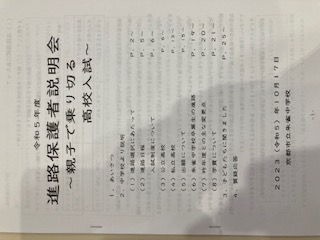 令和5年度
進路保護者説明会
～親子で乗り切る
高校入試～
1．あいさつ
2．中学校より説明
（1）進路選択にあたって P．2～
（2）進路日程 P．5～
（3）公立高校 P．6～
（4）私立高校
（5）出願について
（6）朱雀中学校卒業生の進路 P．19～
（7）昨年度との主な変更点 P．20～
（8）学費について P．21～
3．子どもたちに聞きました P．25～
4．質疑応答
2023（令和5）年10月17日
京都市立朱雀中学校